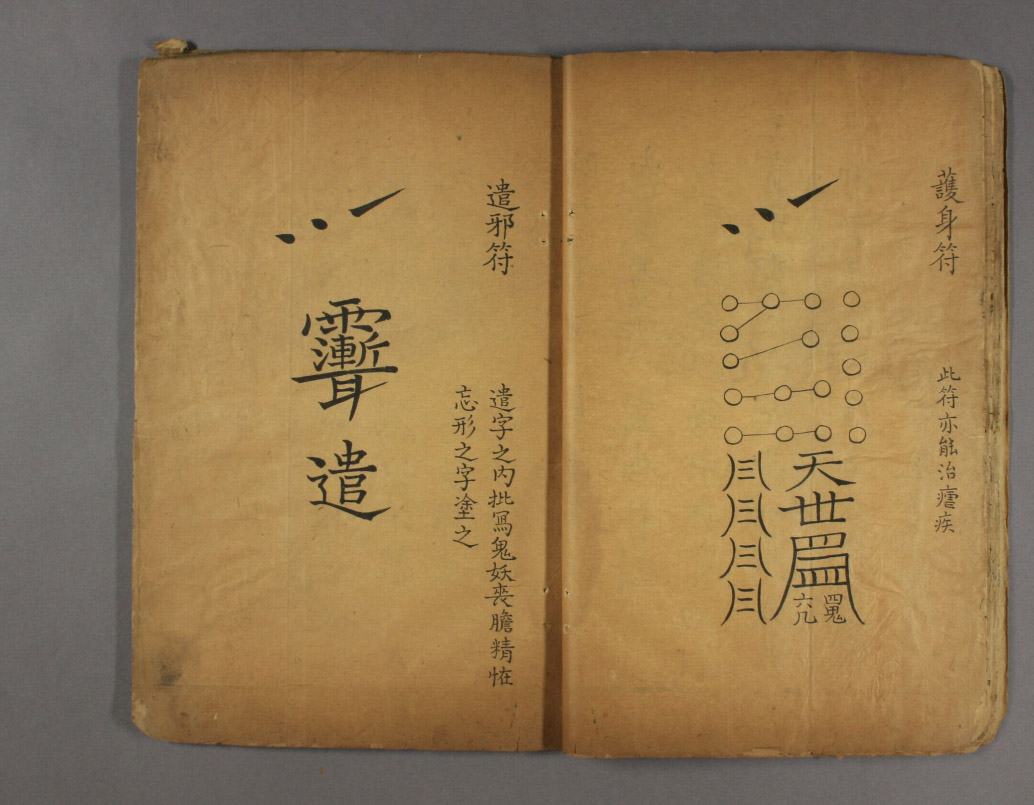 護身符
此符亦能治瘧疾
天
世
四
四鬼
六凡
遣邪符
遣字之内批寫鬼妖喪膽精恠
忘形之字塗之
遣